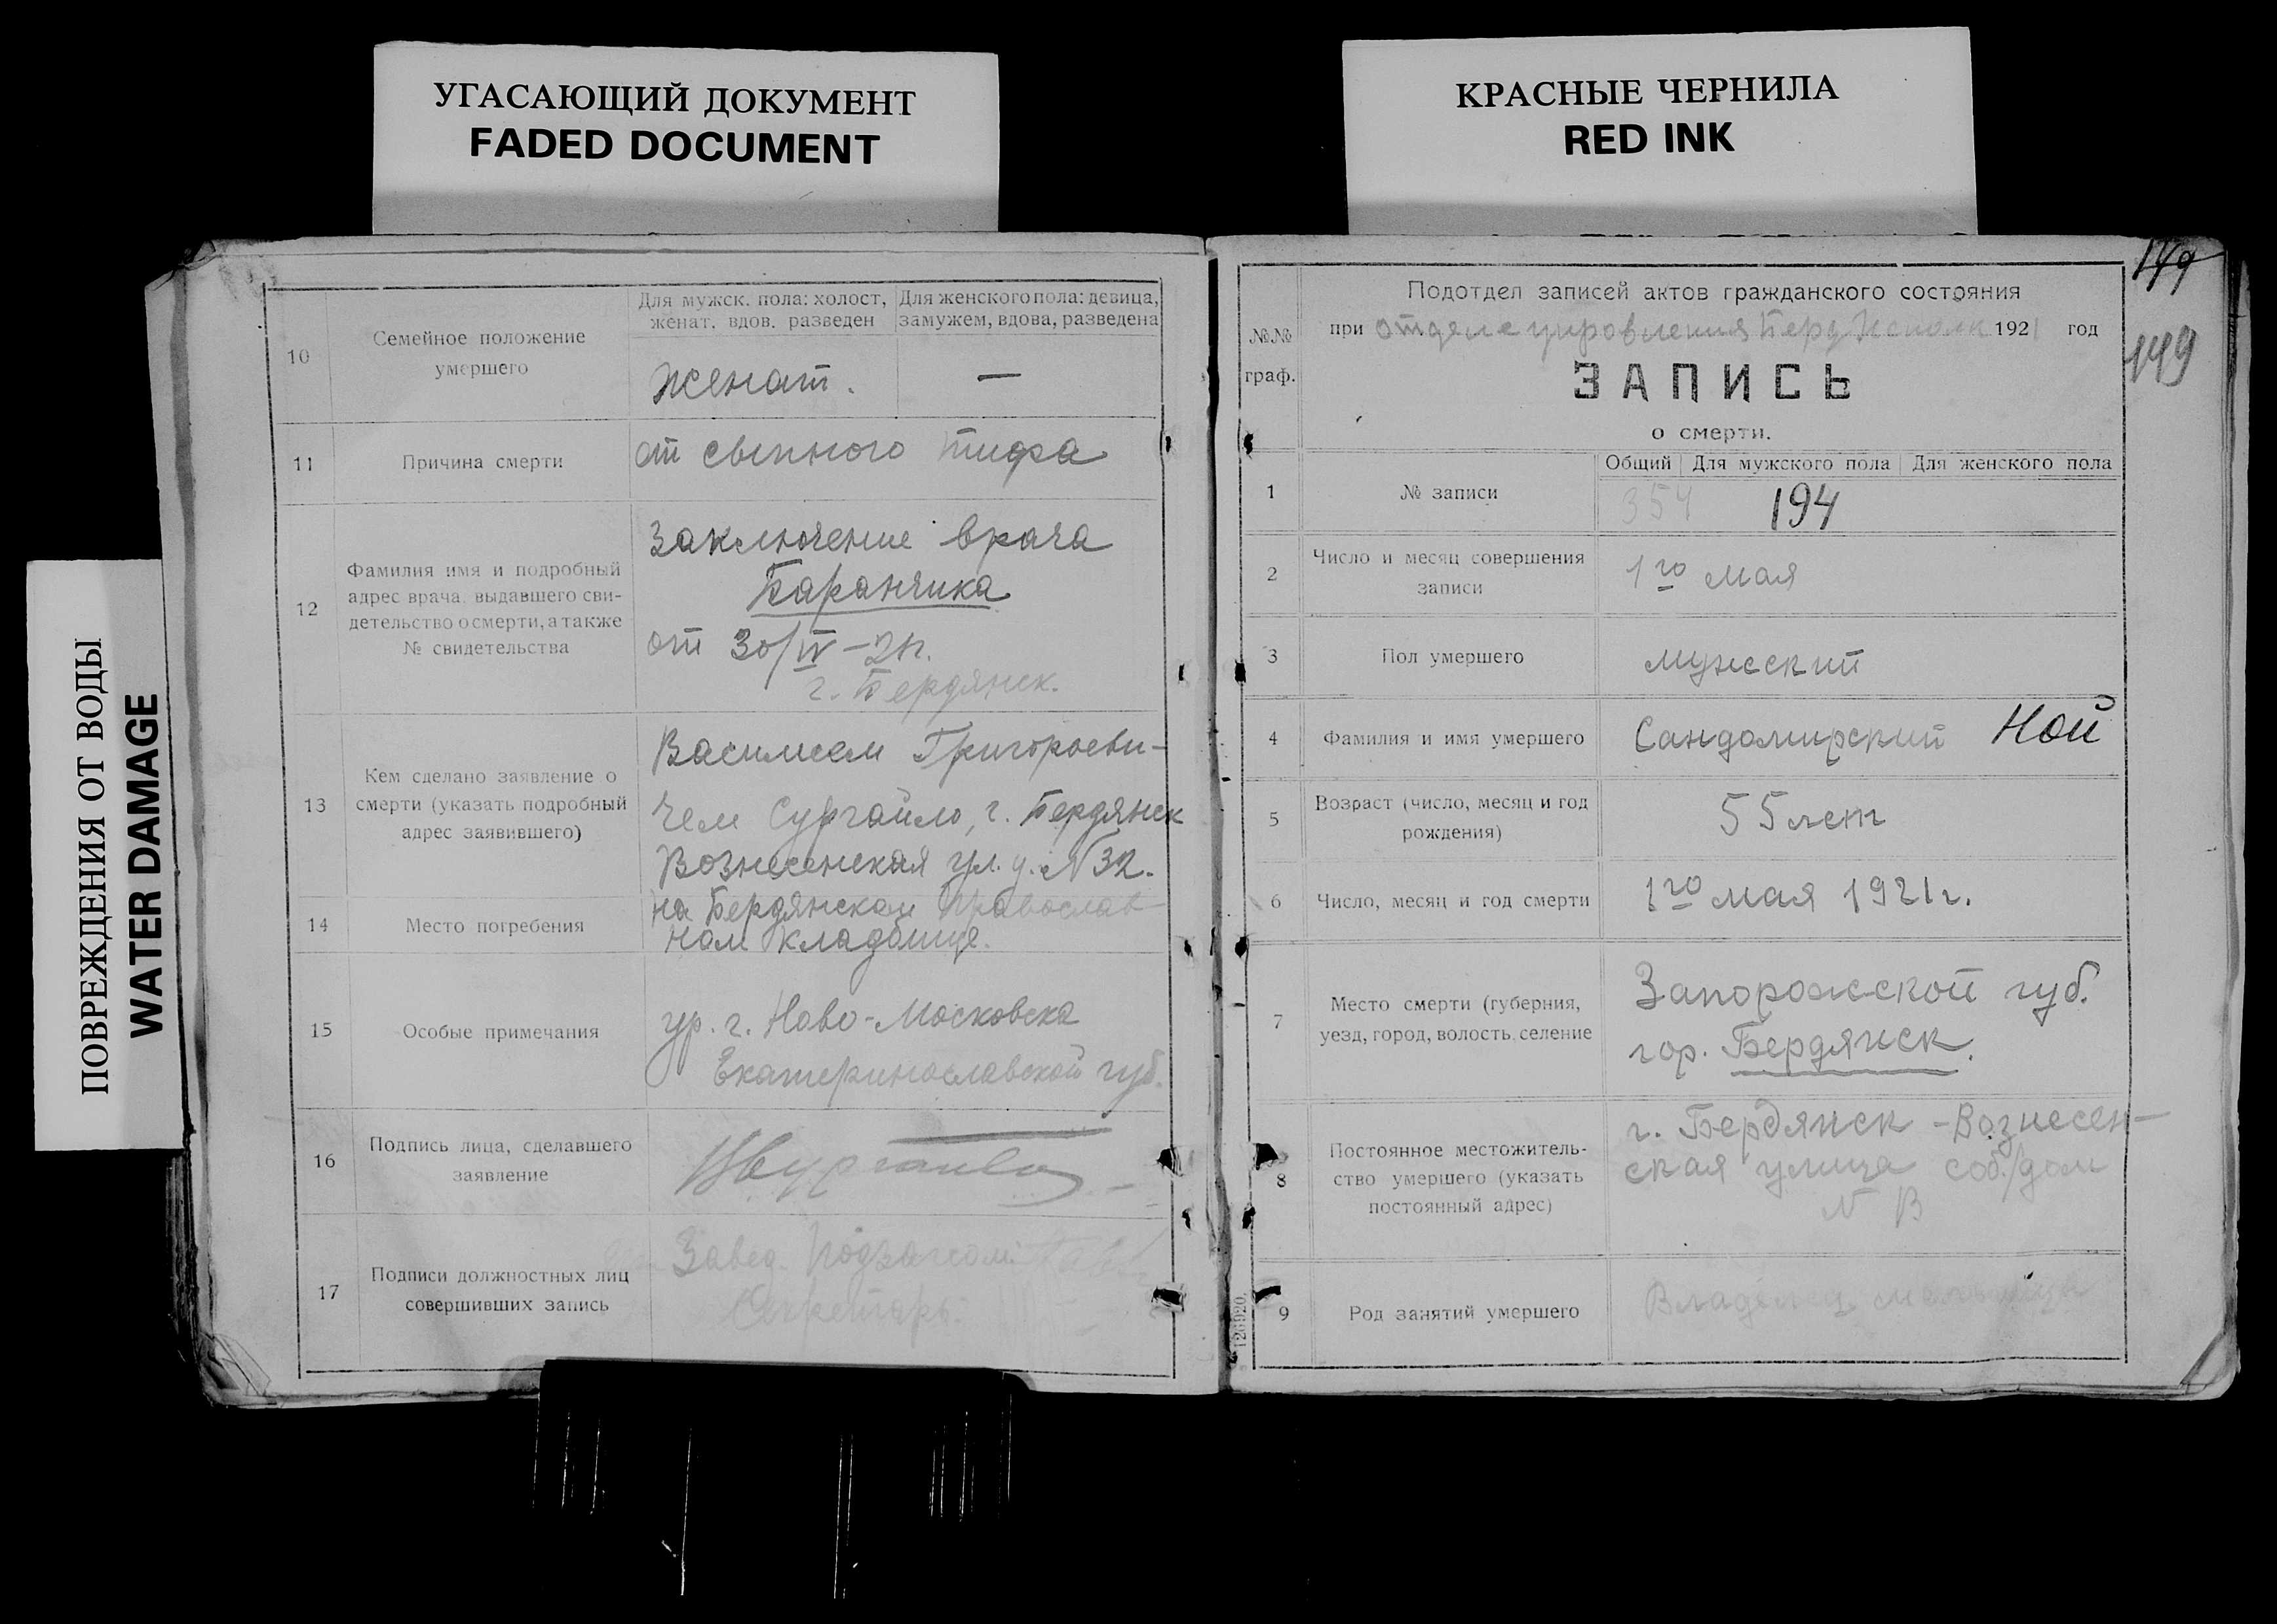 УГАСАЮЩИЙ ДОКУМЕНТ
FADED DOCUMENT
КРАСНЫЕ ЧЕРНИЛА
RED INK
ПОВРЕЖДЕНИЯ ОТ ВОДЫ
WATER DAMAGE
10
Семейное положение
умершего
Для мужск. пола: холост,
женат, вдов, разведен
Для женского пола: девица,
замужем, вдова, разведена
женат.
—
11
Причина смерти
от сыпного тифа
12
Фамилия имя и подробный
адрес врача, выдавшего сви-
детельство о смерти, а также
№ свидетельства
Заключение врача
Баранчика
от 30/IV – 21г.
г. Бердянск.
13
Кем сделано заявление о
смерти (указать подробный
адрес заявившего)
Василием Григорьеви-
чем Сургайло, г. Бердянск
Вознесенская ул. д. N 32.
14
Место погребения
на Бердянском православ-
ном кладбище.
15
Особые примечания
ур. г. Ново-Московска
Екатеринославской губ.
16
Подпись лица, сделавшего
заявление
17
Подписи должностных лиц
совершивших запись
Завед. Подзагсом:
Секретарь:
149
149
№№
граф.
Подотдел записей актов гражданского состояния
при отделе управления Берд Исполк 1921 год
ЗАПИСЬ
о смерти.
1
№ записи
Общий
Для мужского пола
Для женского пола
354
194
2
Число и месяц совершения
записи
1го мая
3
Пол умершего
мужский
4
Фамилия и имя умершего
Сандомирский Ной
5
Возраст (число, месяц и год
рождения)
55 лет
6
Число, месяц и год смерти
1го мая 1921 г.
7
Место смерти (губерния,
уезд, город, волость, селение
Запорожской губ.
гор. Бердянск.
8
Постоянное местожитель-
ство умершего (указать
постоянный адрес)
г. Бердянск - Вознесен-
ская улица соб./дом
N В
9
Род занятий умершего
Владелец мельницы
126920.